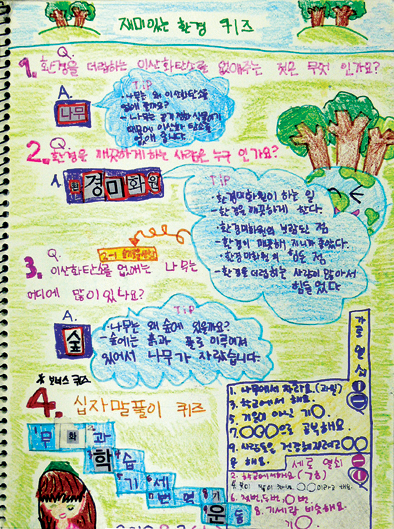 재미있는 환경 퀴즈
Q.
1. 환경을 더럽히는 이산화탄소를 없애주는 것은 무엇 인가요?
A.
나무
TiP
·나무는 왜 이산화탄소를
없애 줄까요?
2. 환경을 깨끗하게 하는 사람은 누구 인가요?
A. 환경미화원
TiP
·환경미화원이 하는 일
·환경을 깨끗하게 한다.
·환경미화원의 보람된 점
·환경이 깨끗해 지니까 좋았다.
·환경미화원의 힘든 점
·환경을 더럽히는 사람이 많아서
힘들었다
Q.
3. 이산화탄소를 없애는 나무는
어디에 많이 있나요?
A.
숲
TiP
·나무는 왜 숲에 있을까요?
·숲에는 흙과 풀로 이루어져
있어서 나무가 자랐습니다.
*보너스 퀴즈
4. 십자말풀이 퀴즈
무화과
학습
기세
가로열쇠
1. 나무에서 자라요. (과일)
3. 학교에서 해요.
5. 가을이 아닌 기○
7. ○○○으로 공부해요.
9. 사람들은 건강해지려고 ○○
을 해요.
세로 열쇠
2. 학교에서해요
8. 기세랑 비슷해요.